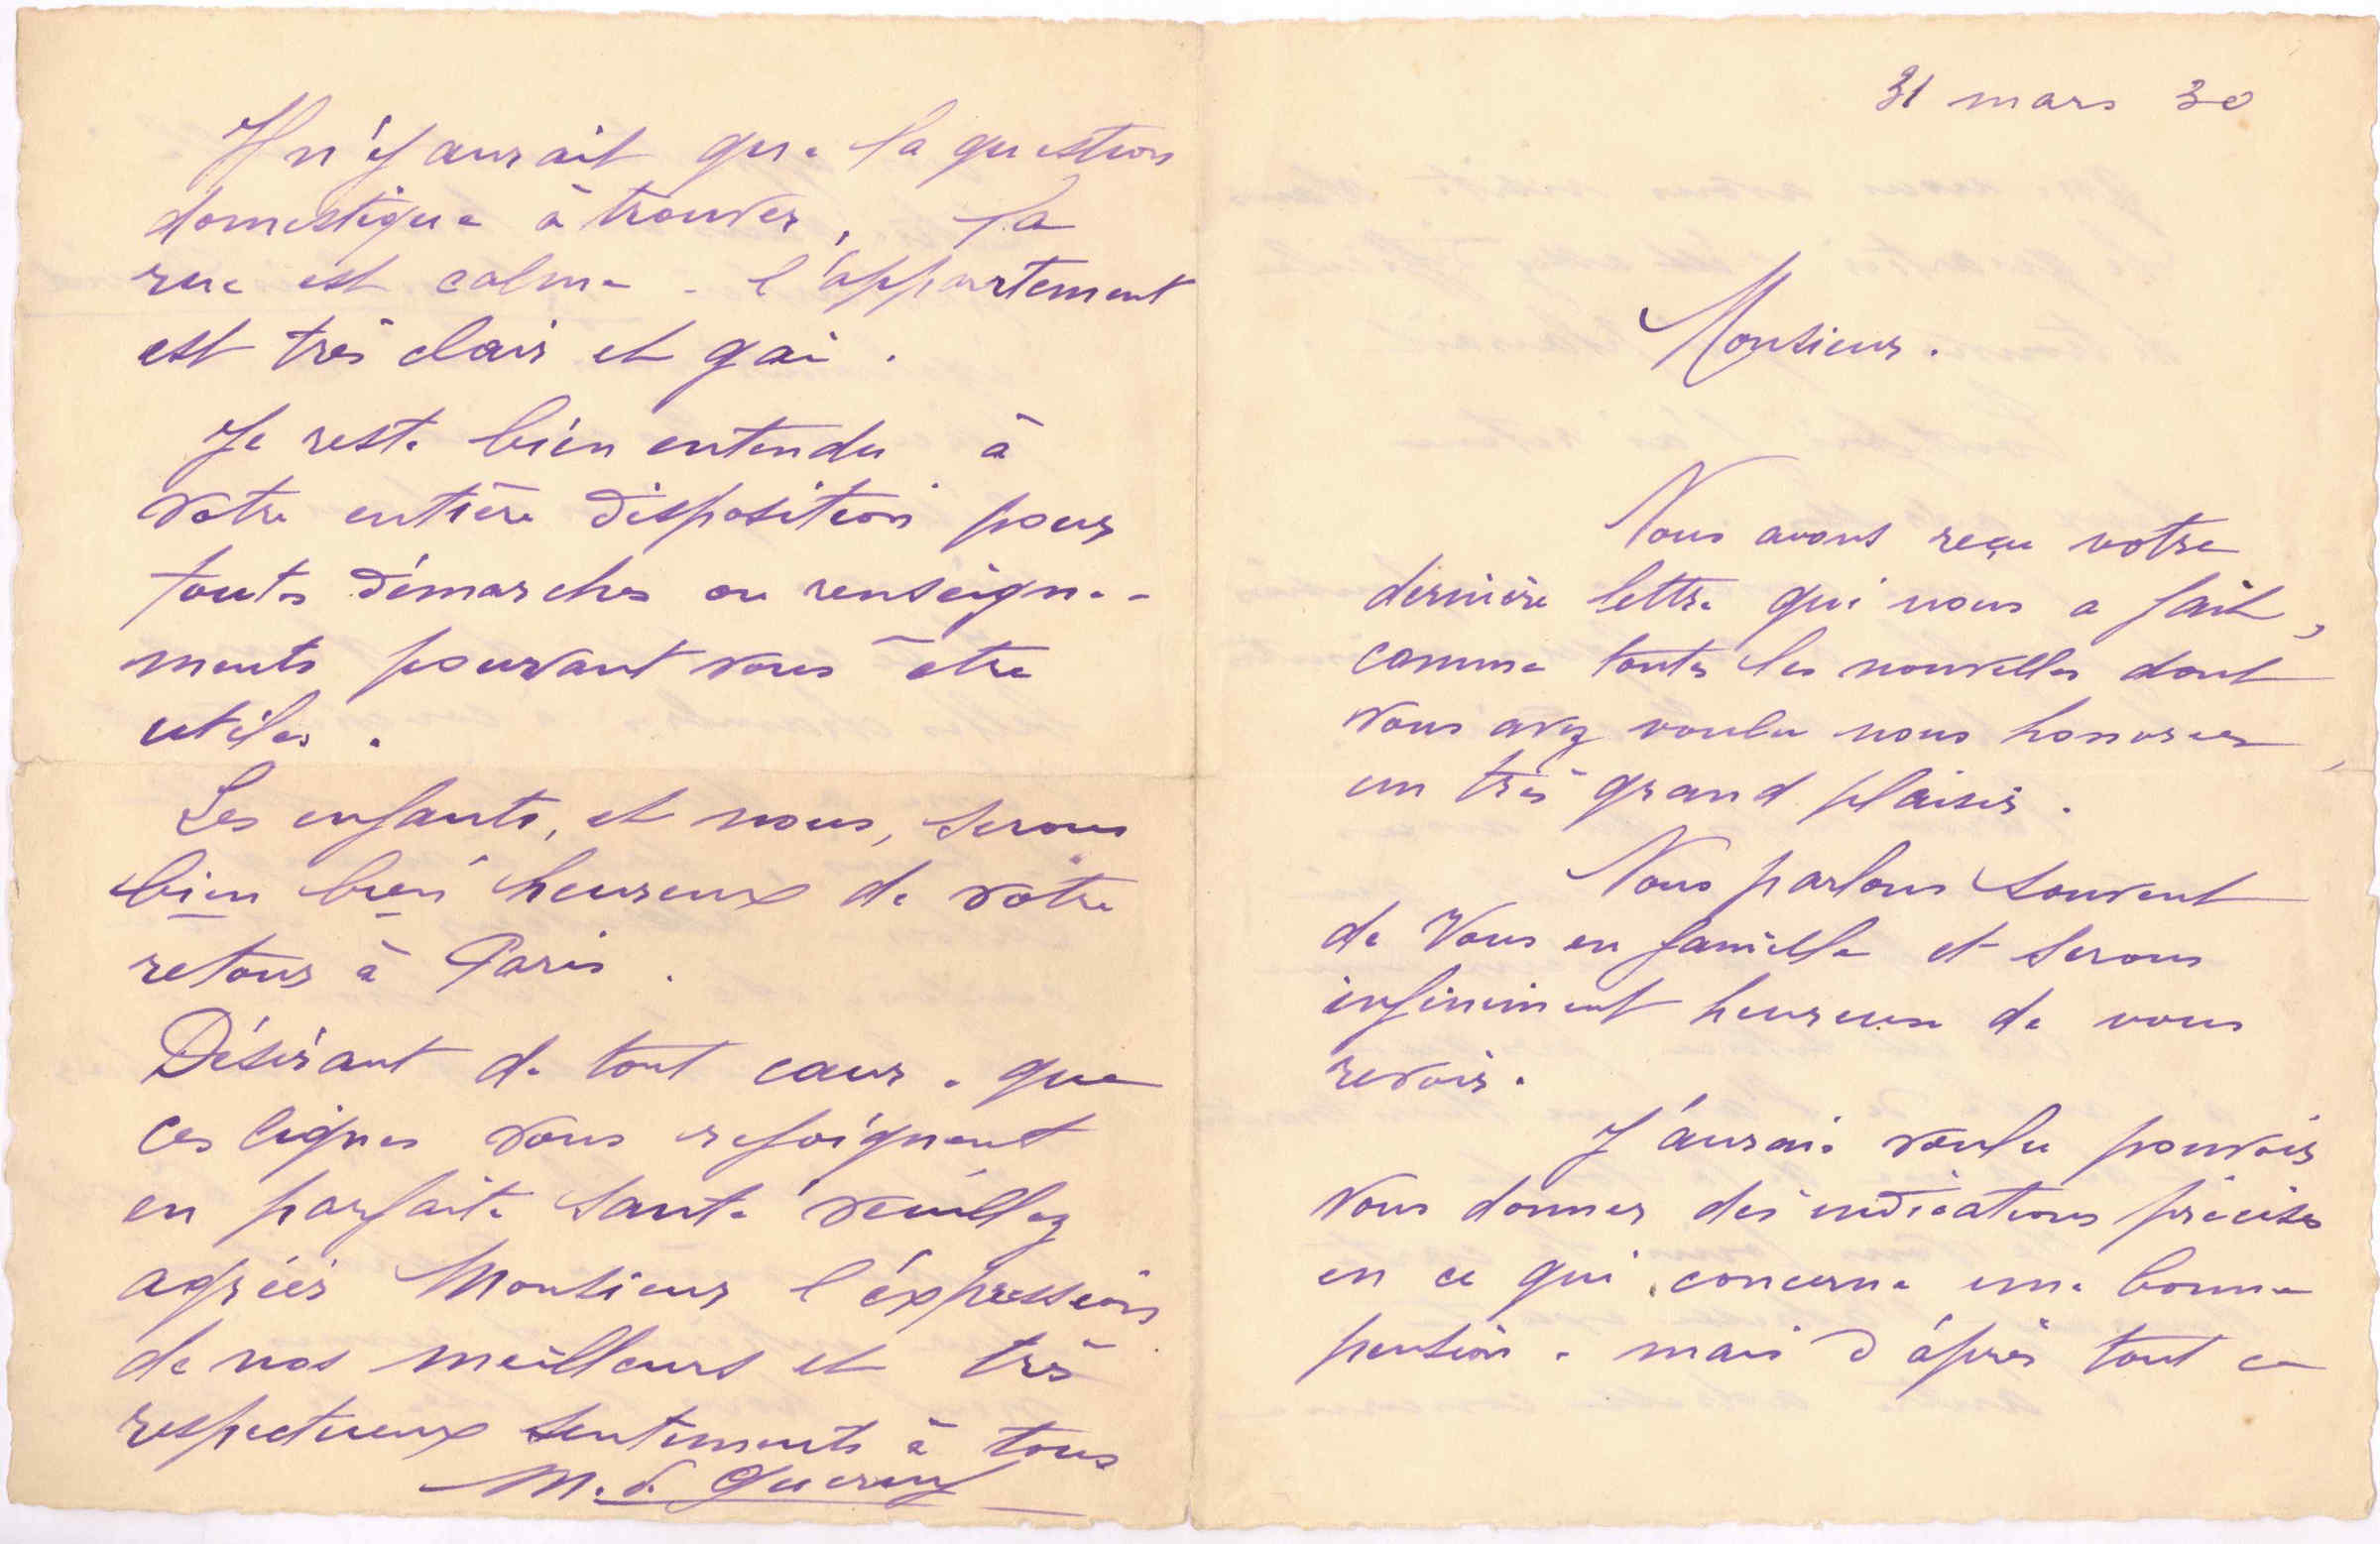 31 mars 30
Monsieur.
Nous avons reçu votre
dernière lettre qui nous a fait,
comme toutes les nouvelles dont
vous avez voulu nous honorer,
un très grand plaisir.
Nous parlons souvent
de Vous en famille et serons
infiniment heureux de vous
revoir.
J'aurais voulu pouvoir
vous donner des indications précises
en ce qui concerne une bonne
pension. mais d'après tout ce
Il n'y aurait que la question
domestique à trouver, la
rue est calme - l'appartement
est très clair et gai.
Je reste bien entendu à
votre entière disposition pour
toutes démarches ou renseigne-
ments pouvant vous être
utiles.
Les enfants, et nous, serons
bien bien heureux de votre
retour à Paris.
Désirant de tout cœur. que
ces lignes vous rejoignent
en parfaite santé veuillez
agréer Monsieur l'expression
de nos meilleurs et très
respectueux sentiments à tous
M. d.